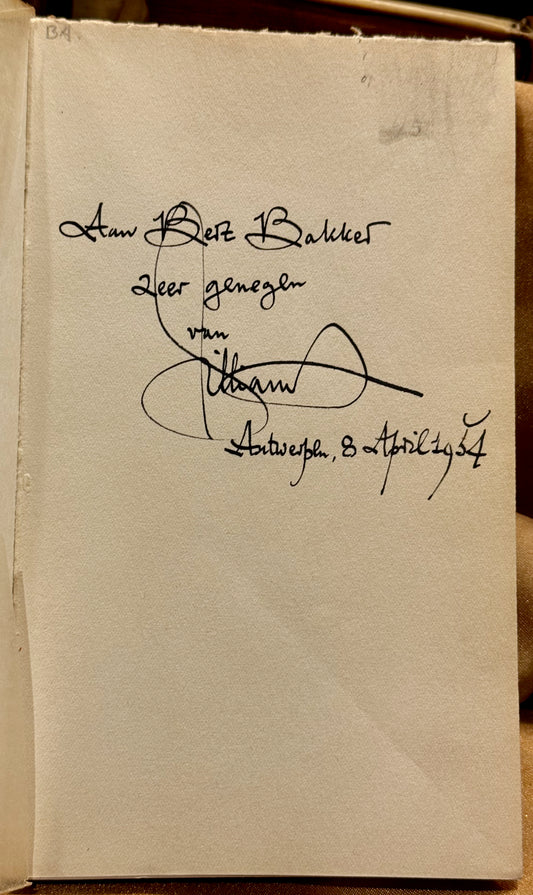 BA.
Aan Bert Bakker
Zeer genegen
van
William
Antwerpen, 8 April 1954